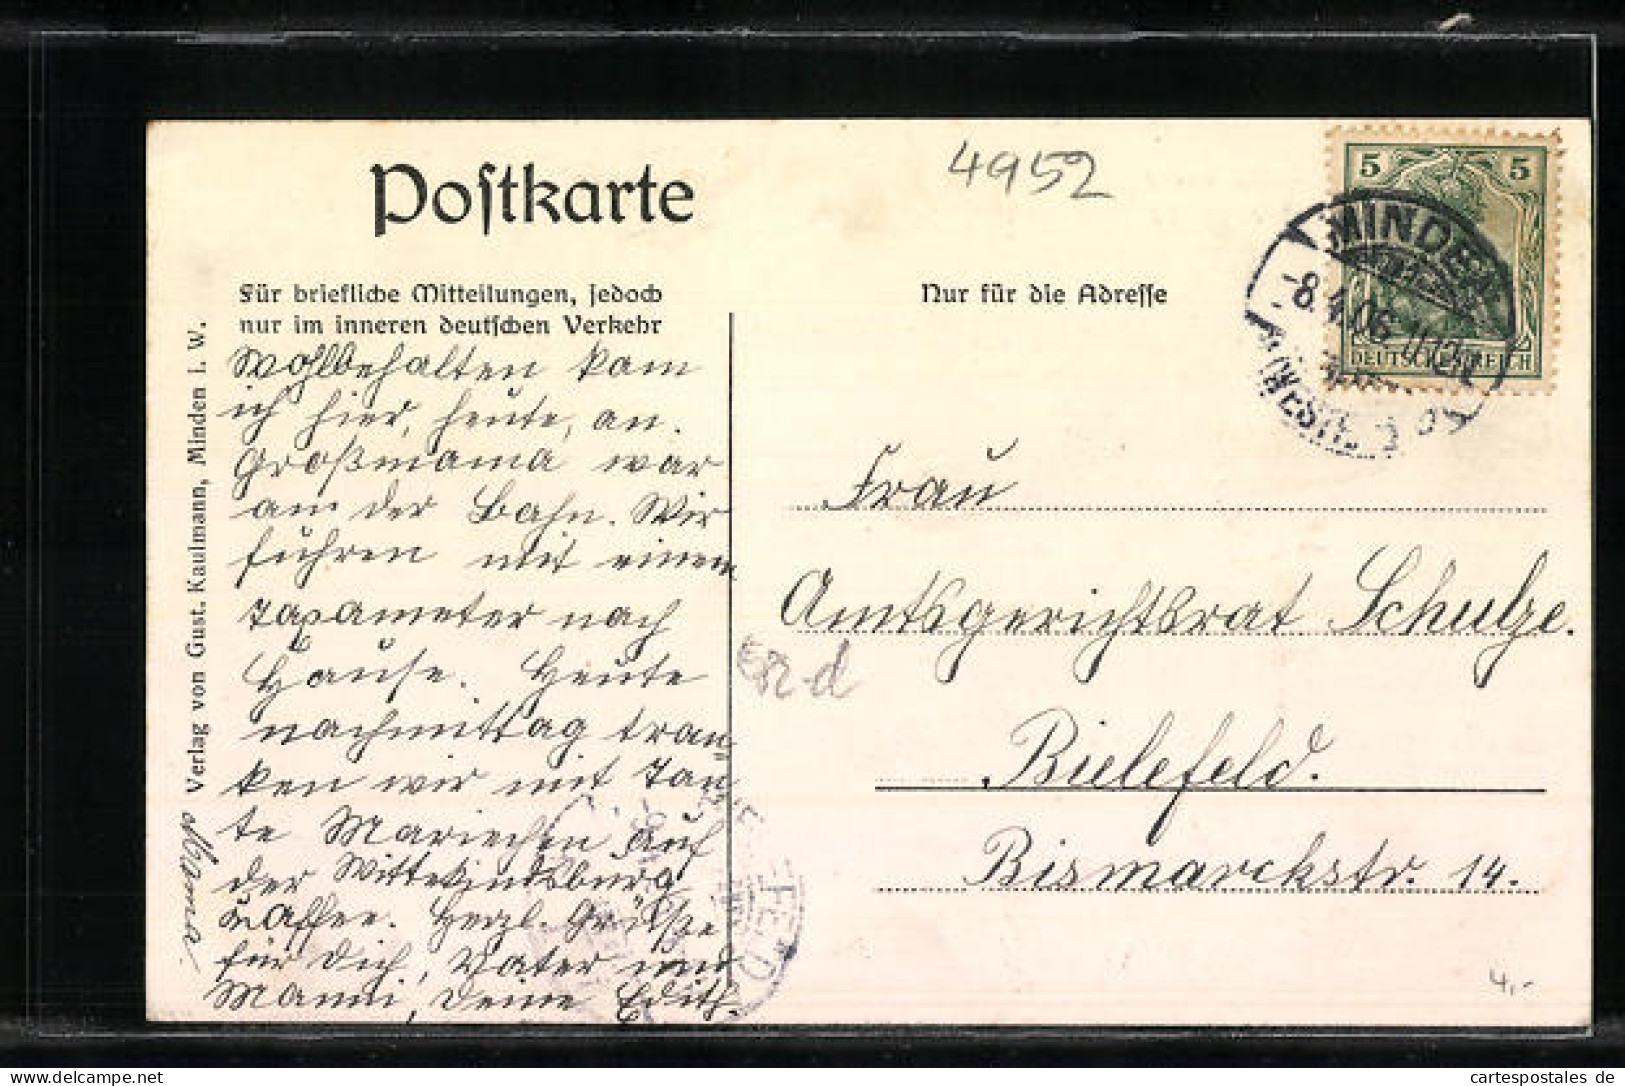 4952
Postkarte
5 5
DEUTSCHES REICH
MINDEN
-8.4.06.11-12
(WESTF.)
Für briefliche Mitteilungen, jedoch
nur im inneren deutschen Verkehr
Nur für die Adresse
Verlag von Gust. Kaulmann, Minden i. W.
Wohlbehalten kam
ich hier, heute, an.
Großmama war
am der Bahn. Wir
fuhren mit einem
Taxameter nach
Hause. Heute
nachmittag tran-
ken wir mit Tan-
te Mariechen auf
der Wittekindsburg
Kaffee. Herzl. Grüße
für Dich, Vater und
Manni, Deine Edith.
Mama.
Frau
Amtsgerichtsrat Schulze.
Bielefeld.
Bismarckstr. 14.
FELD
4,-
delcampe.net
cartespostales de